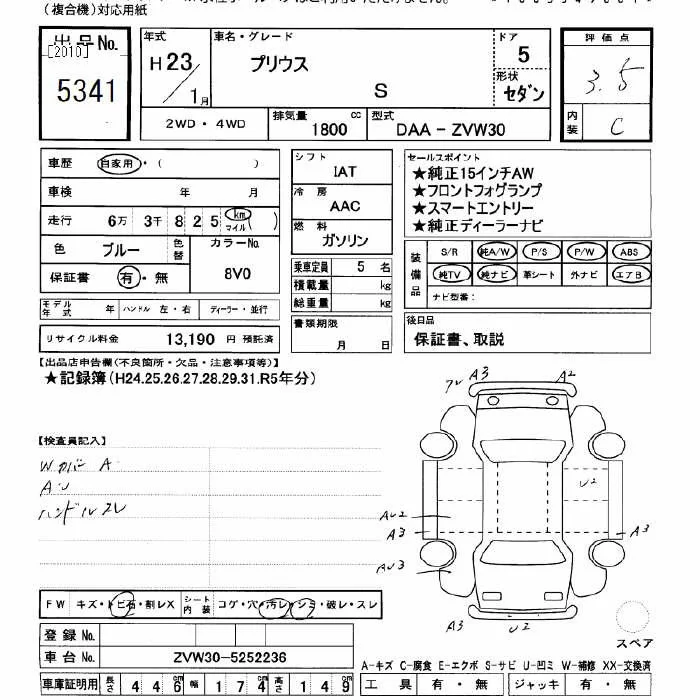 (複合機)対応用紙
出品No.
[2010]
5341
年式
H23/1月
車名・グレード
プリウス
S
ドア
5
形状
セダン
評価点
3.5
内装
C
2WD・4WD
排気量
1800 cc
型式
DAA-ZVW30
車歴 自家用・( )
車検 年 月
走行 6万 3千 8 2 5 km マイル ( )
色 ブルー 色替
カラーNo.
8V0
保証書 有・無
モデル年式 年 ハンドル 左・右 ディーラー・並行
リサイクル料金 13,190 円 預託済
シフト
IAT
冷房
AAC
燃料
ガソリン
乗車定員 5 名
積載量 kg
総重量 kg
書類期限
月 日
セールスポイント
★純正15インチAW
★フロントフォグランプ
★スマートエントリー
★純正ディーラーナビ
装備品
S/R 純A/W P/S P/W ABS
純TV 純ナビ 革シート 外ナビ エアB
ナビ型番:
後日品
保証書、取説
【出品店申告欄(不良箇所・欠品・注意事項等)】
★記録簿(H24.25.26.27.28.29.31.R5年分)
【検査員記入】
Wカバー A
AU
ハンドルスレ
A3
A2
U2
AU2
A3
A3
AU3
A3
U2
スペア
FW キズ・トビ石・割レX
シート内装 コゲ・穴・汚レ・シミ・破レ・スレ
登録 No.
車台 No. ZVW30-5252236
車庫証明用 長さ 4 4 6 cm 幅 1 7 4 cm 高さ 1 4 9 cm
A-キズ C-腐食 E-エクボ S-サビ U-凹ミ W-補修 XX-交換済
工具 有・無 ジャッキ 有・無